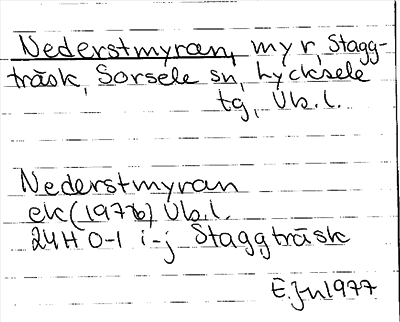 Nederstmyran, myr, Stagg-
träsk, Sorsele sn, Lycksele
tg, Vb.l.
Nederstmyran
ek (1976) Vb.l.
24H 0-1 i-j Staggträsk
E.Jn 1977